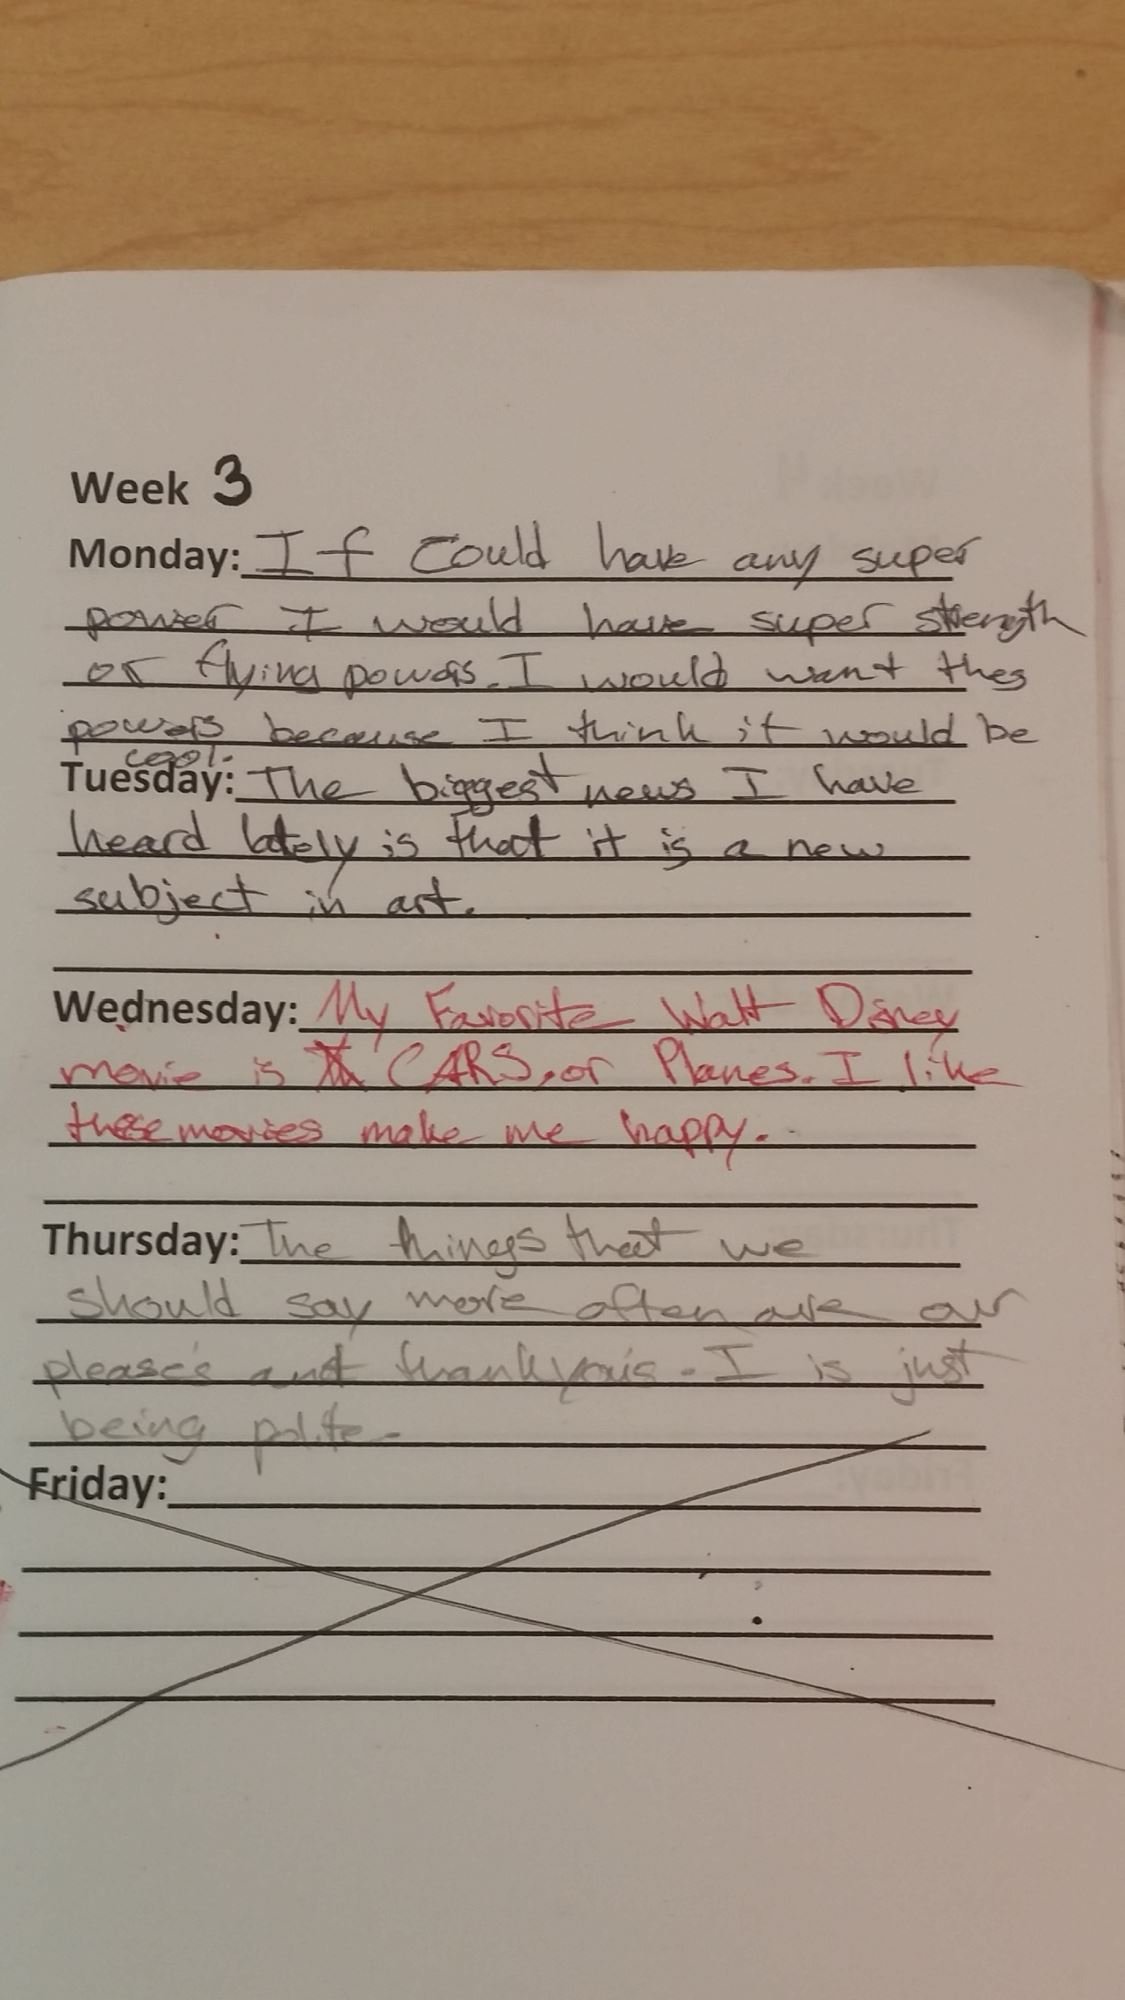 Week 3
Monday: If Could have any super
power I would have super strength
or flying powers. I would want thes
powers because I think it would be
cool.
Tuesday: The biggest news I have
heard lately is that it is a new
subject in art.
Wednesday: My Favorite Walt Disney
movie is CARS, or Planes. I like
these movies make me happy.
Thursday: The things that we
should say more often are our
please's and thankyou's. I is just
being polite.
Friday: